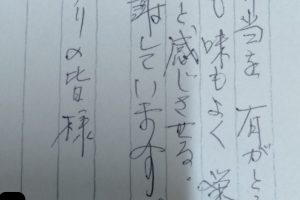 り当を 有がとう
も 味もよく 栄
と 感じさせる。
謝しています
りの皆様